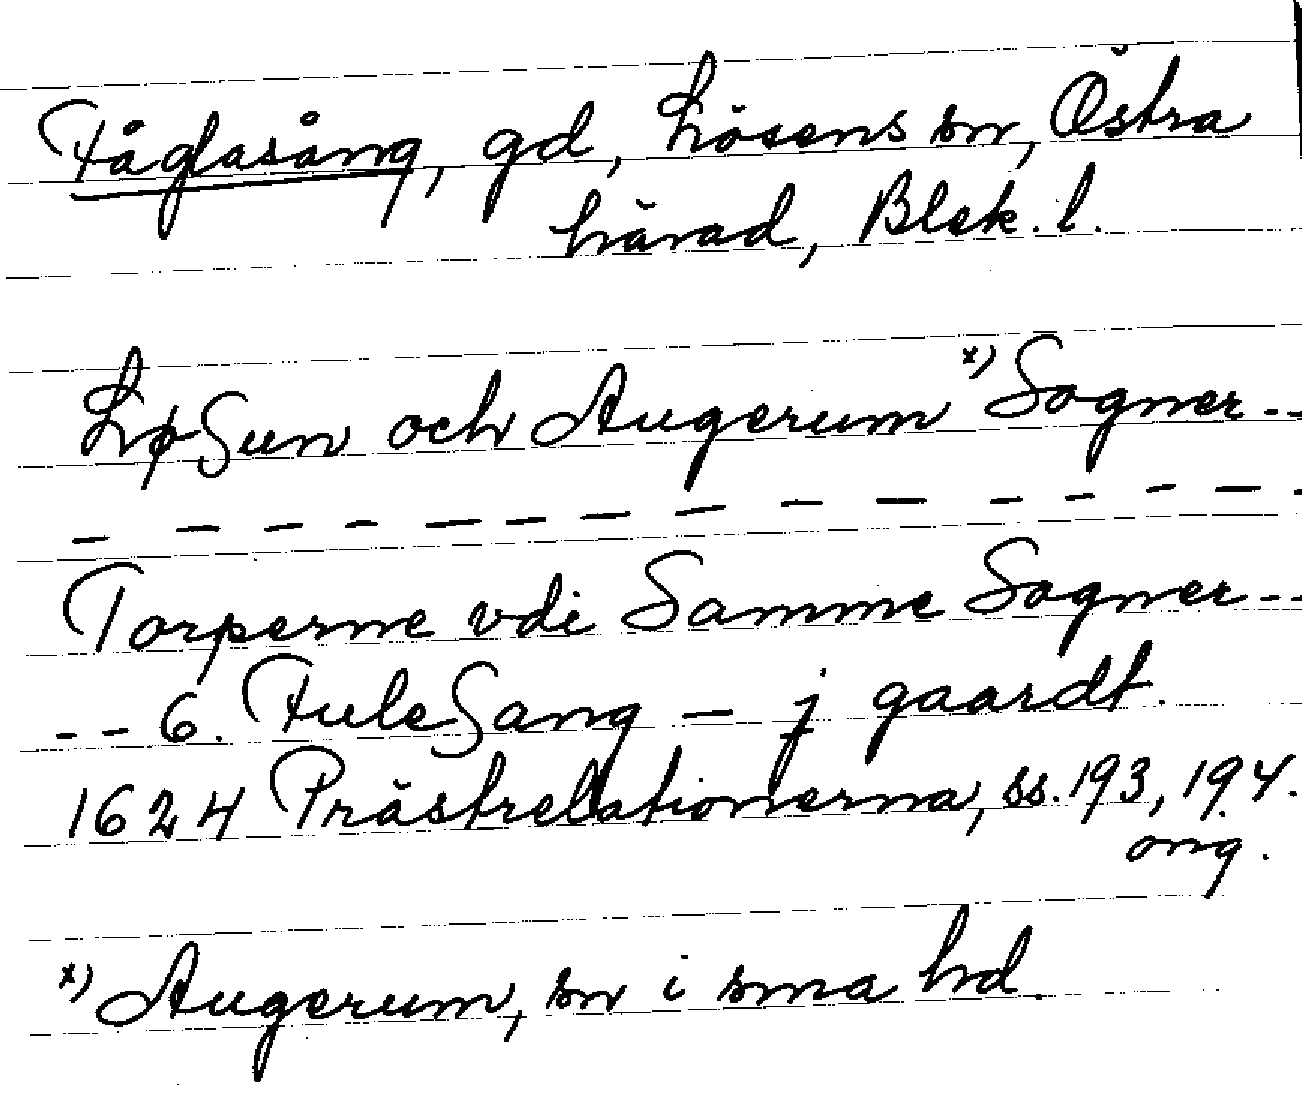 Fåglasång, gd, Lösens sn, Östra
härad, Blek. l.
LøSun och Augerum x) Sogner --
- - - - - - - - - - - - - -
Torperne vdi Samme Sogner --
-- 6. FuleSang - j gaardt.
1624 Prästrelationerna, ss. 193, 194.
orig.
x) Augerum, sn i sma hd